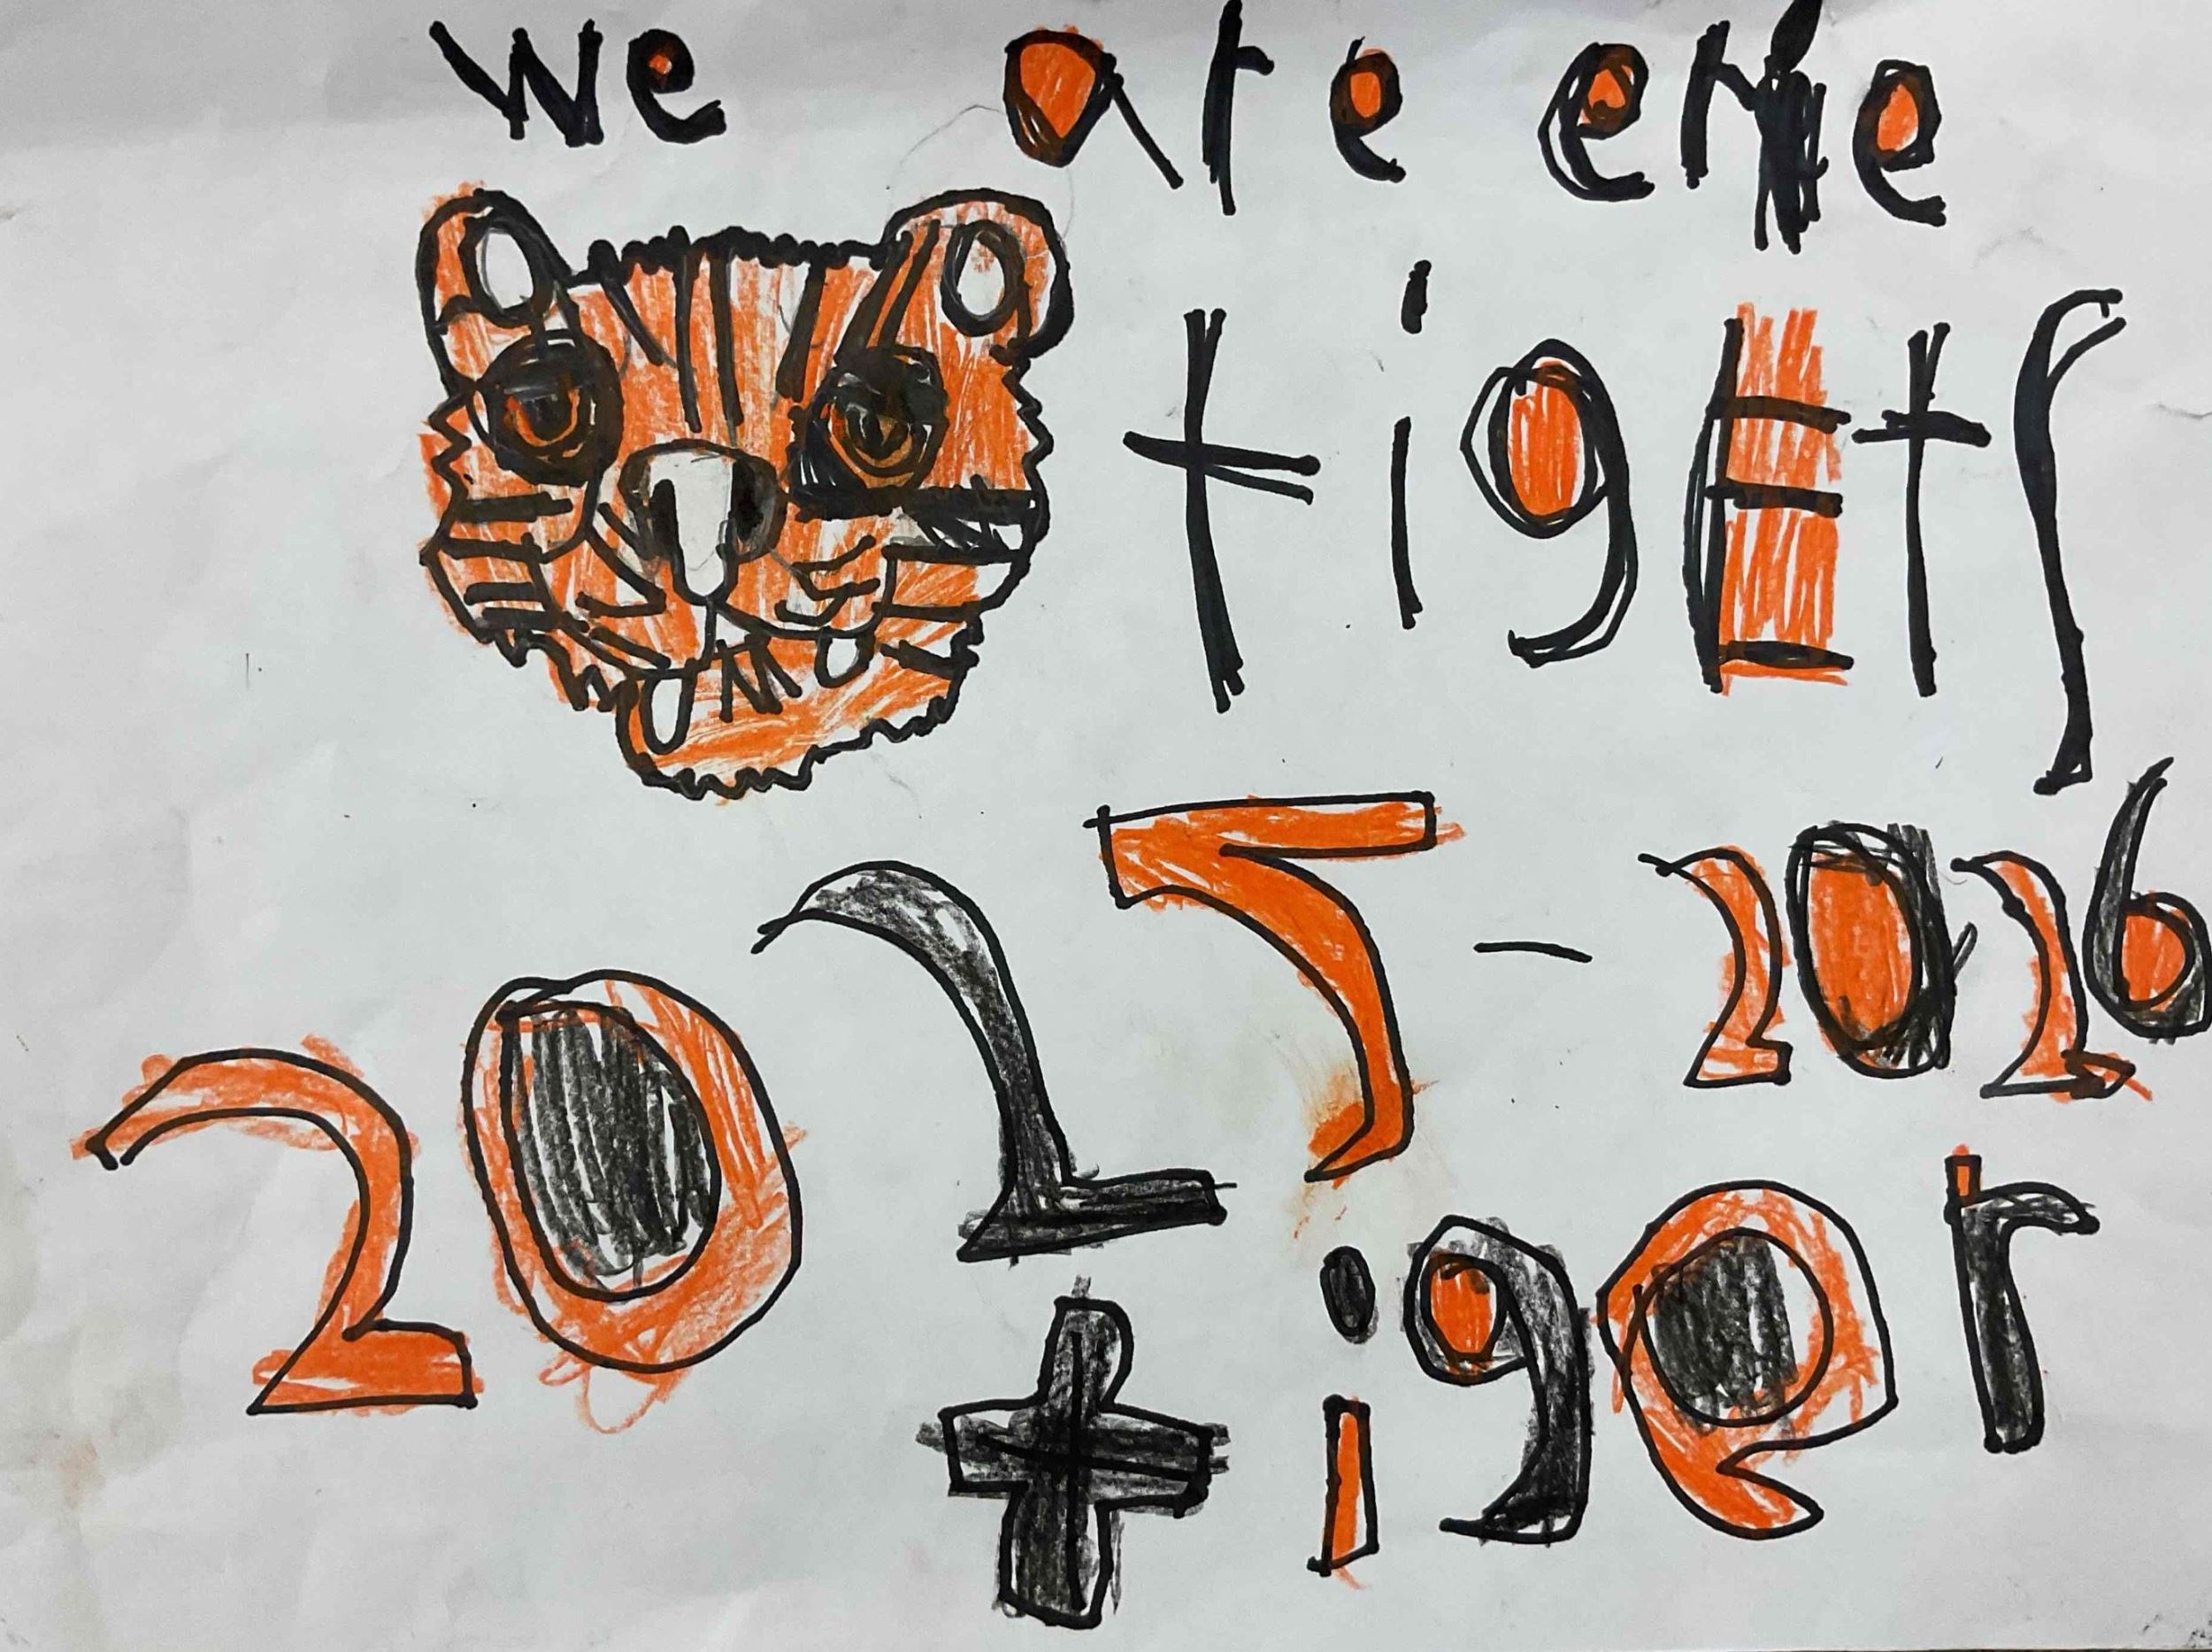 we are erie
tigEts
2025 - 2026
tiger